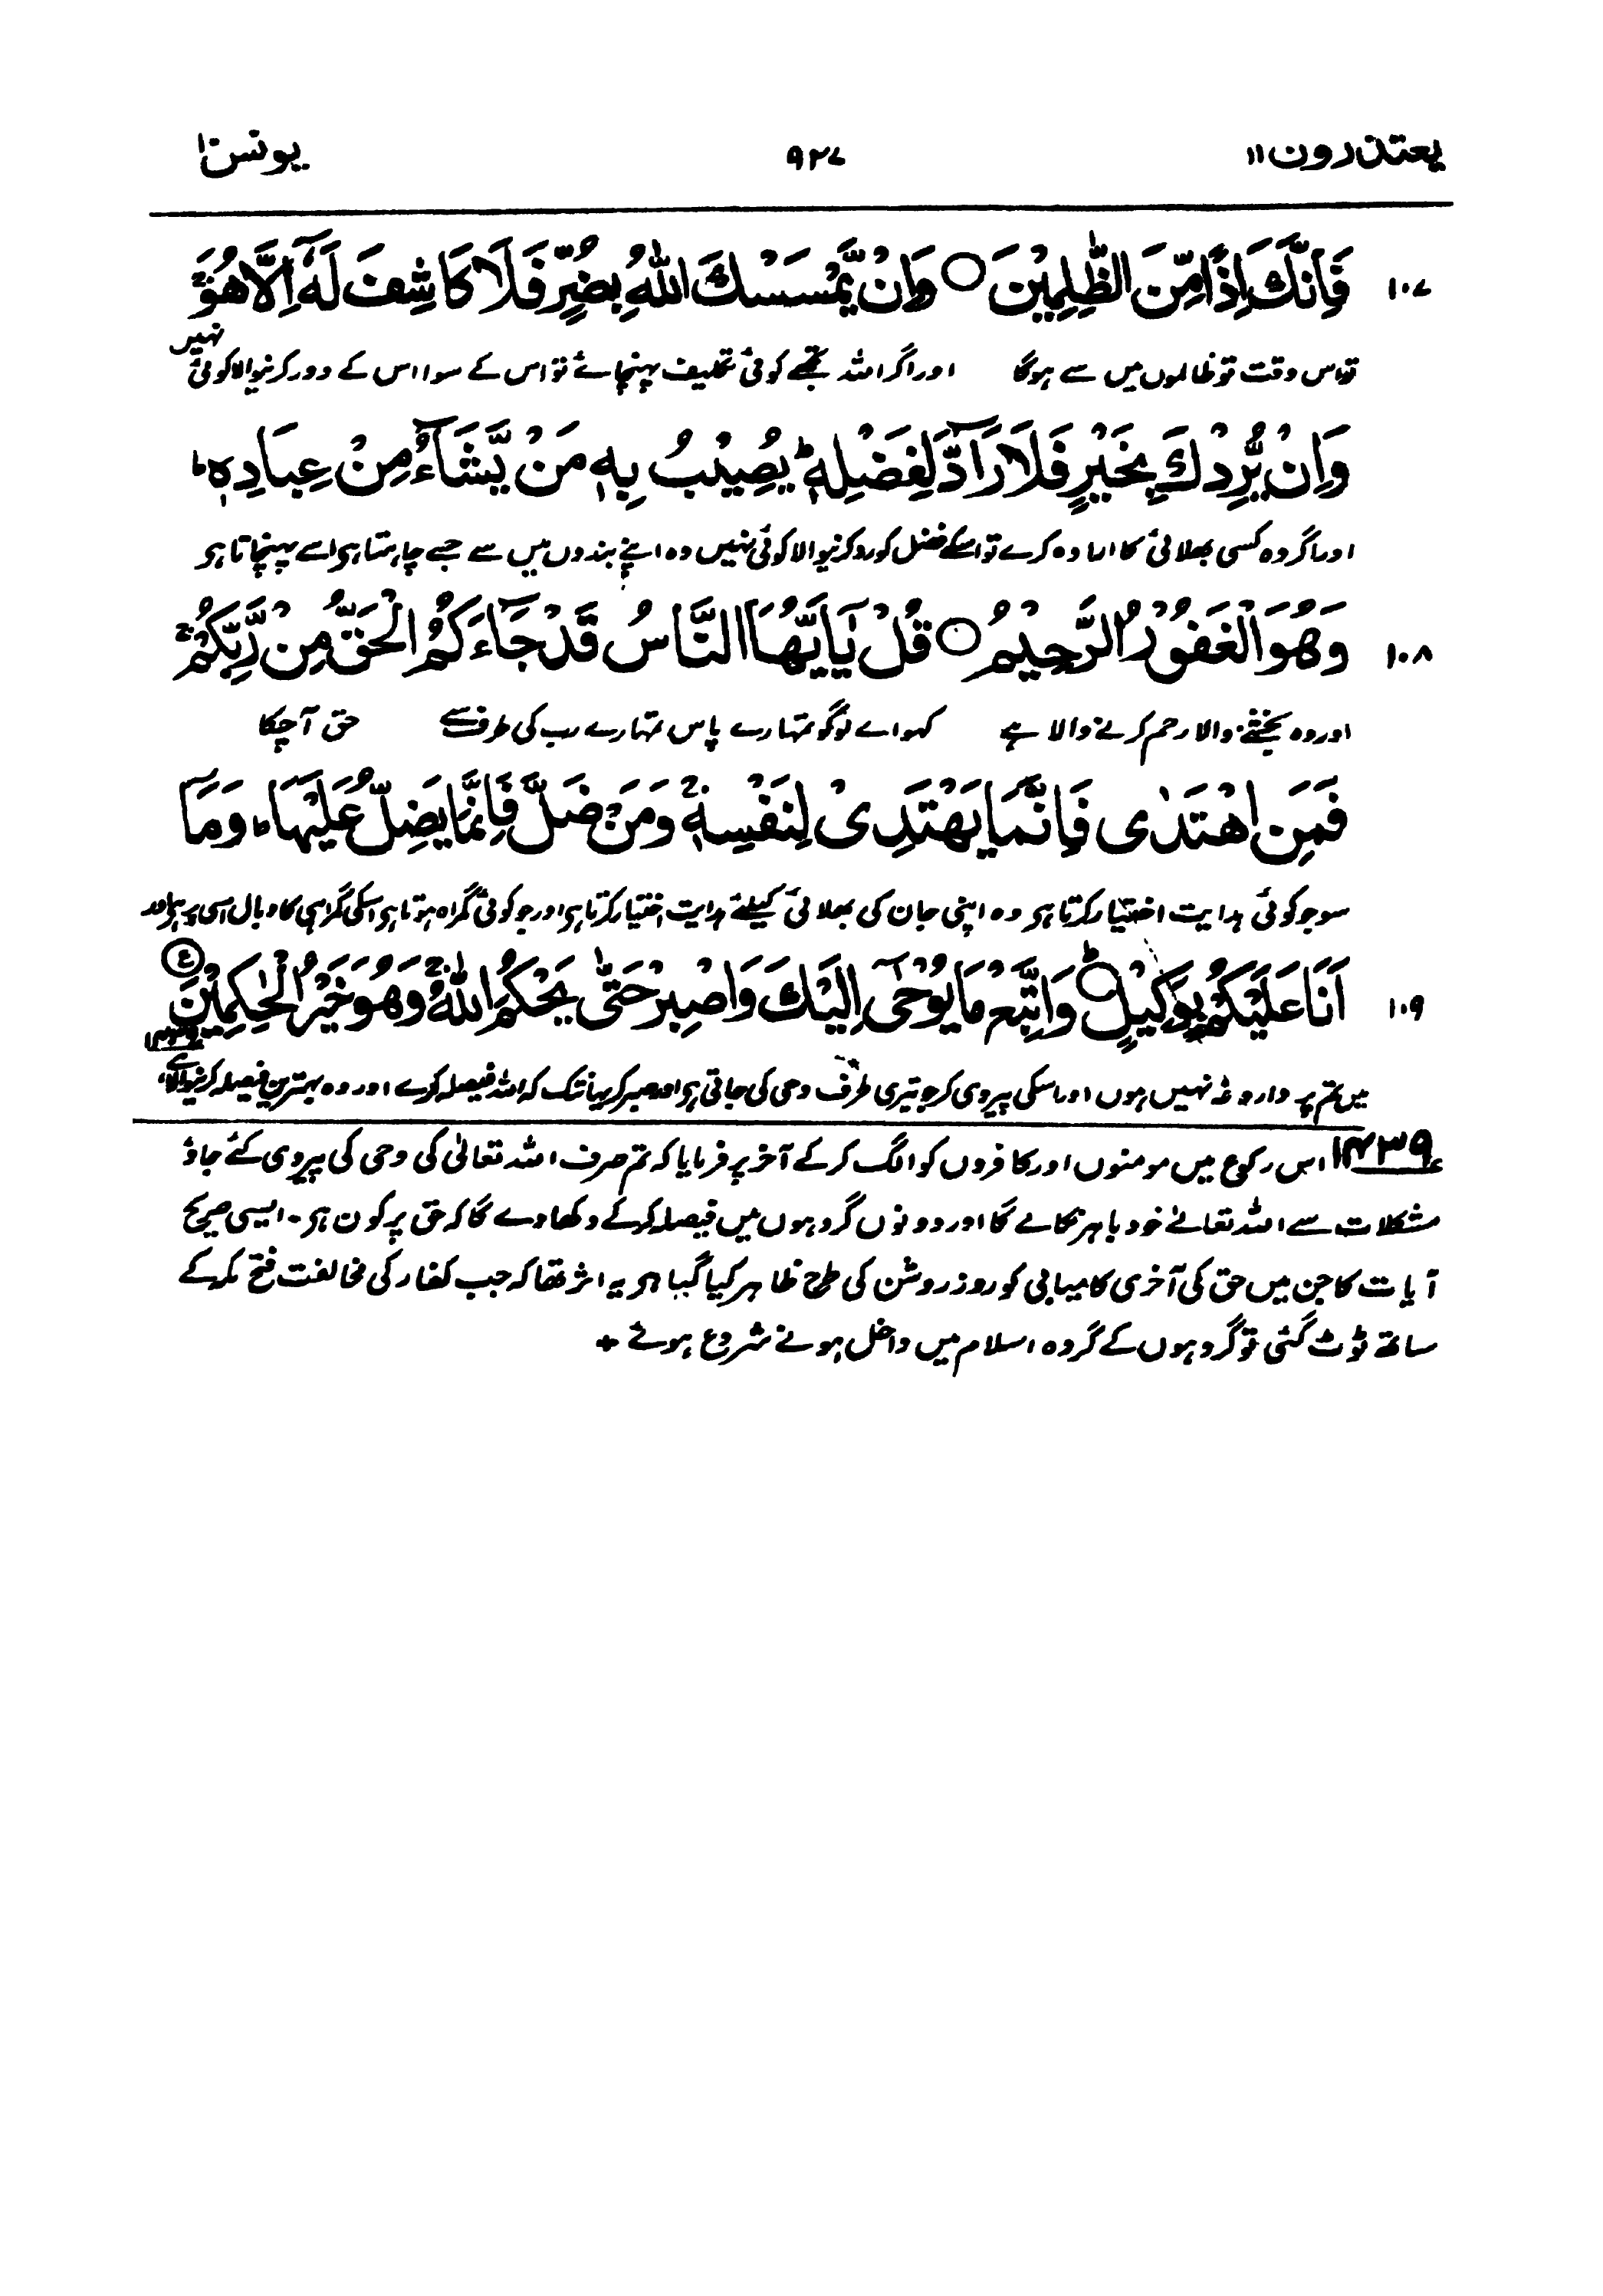 یعتذرون ۱۱ ۹۲۷ یونس ۱۰
۱۰۷ فَاِنَّكَ اِذًا مِّنَ الظّٰلِمِیْنَ ○ وَاِنْ یَّمْسَسْكَ اللّٰهُ بِضُرٍّ فَلَا كَاشِفَ لَهٗۤ اِلَّا هُوَ ۚ
تو اس وقت تو ظالموں میں سے ہوگا اور اگر اللہ تجھے کوئی تکلیف پہنچائے تو اس کے سوا اس کے دور کرنیوالا کوئی نہیں
وَاِنْ یُّرِدْكَ بِخَیْرٍ فَلَا رَآدَّ لِفَضْلِهٖ ؕ یُصِیْبُ بِهٖ مَنْ یَّشَآءُ مِنْ عِبَادِهٖ ؕ
اور اگر وہ کسی بھلائی کا ارادہ کرے تو اسکے فضل کو رد کرنیوالا کوئی نہیں وہ اپنے بندوں میں سے جسے چاہتا ہی اسے پہنچاتا ہی
۱۰۸ وَهُوَ الْغَفُوْرُ الرَّحِیْمُ ○ قُلْ یٰۤاَیُّهَا النَّاسُ قَدْ جَآءَكُمُ الْحَقُّ مِنْ رَّبِّكُمْ ۚ
اور وہ بخشنے والا رحم کرنے والا ہے کہو اے لوگو تمہارے پاس تمہارے رب کی طرف سے حق آ چکا
فَمَنِ اهْتَدٰی فَاِنَّمَا یَهْتَدِیْ لِنَفْسِهٖ ۚ وَمَنْ ضَلَّ فَاِنَّمَا یَضِلُّ عَلَیْهَا ؕ وَمَاۤ
سو جو کوئی ہدایت اختیار کرتا ہی وہ اپنی جان کی بھلائی کیلئے ہدایت اختیار کرتا ہی اور جو کوئی گمراہ ہوتا ہی اسکی گمراہی کا وبال اسی پر ہی اور
۱۰۹ اَنَا عَلَیْكُمْ بِوَكِیْلٍ ○ؕ وَاتَّبِعْ مَا یُوْحٰۤی اِلَیْكَ وَاصْبِرْ حَتّٰی یَحْكُمَ اللّٰهُ ۚ وَهُوَ خَیْرُ الْحٰكِمِیْنَ ع ۱۴۳۹
میں تم پر داروغہ نہیں ہوں اور اسکی پیروی کر جو تیری طرف وحی کی جاتی ہی اور صبر کر یہانتک کہ اللہ فیصلہ کرے اور وہ بہترین فیصلہ کرنیوالا ہے
۱۴۳۹ اس رکوع میں مومنوں اور کافروں کو الگ کر کے آخر پر فرمایا کہ تم صرف اللہ تعالیٰ کی وحی کی پیروی کئے جاؤ
مشکلات سے اللہ تعالےٰ خود باہر نکالے گا اور دونوں گروہوں میں فیصلہ کر کے دکھا دے گا کہ حق پر کون ہی۔ ایسی صریح
آیات کا جن میں حق کی آخری کامیابی کو روز روشن کی طرح ظاہر کیا گیا ہی یہ اثر تھا کہ جب کفار کی مخالفت فتح مکہ کے
ساتھ ٹوٹ گئی تو گروہوں کے گروہ اسلام میں داخل ہونے شروع ہوئے +